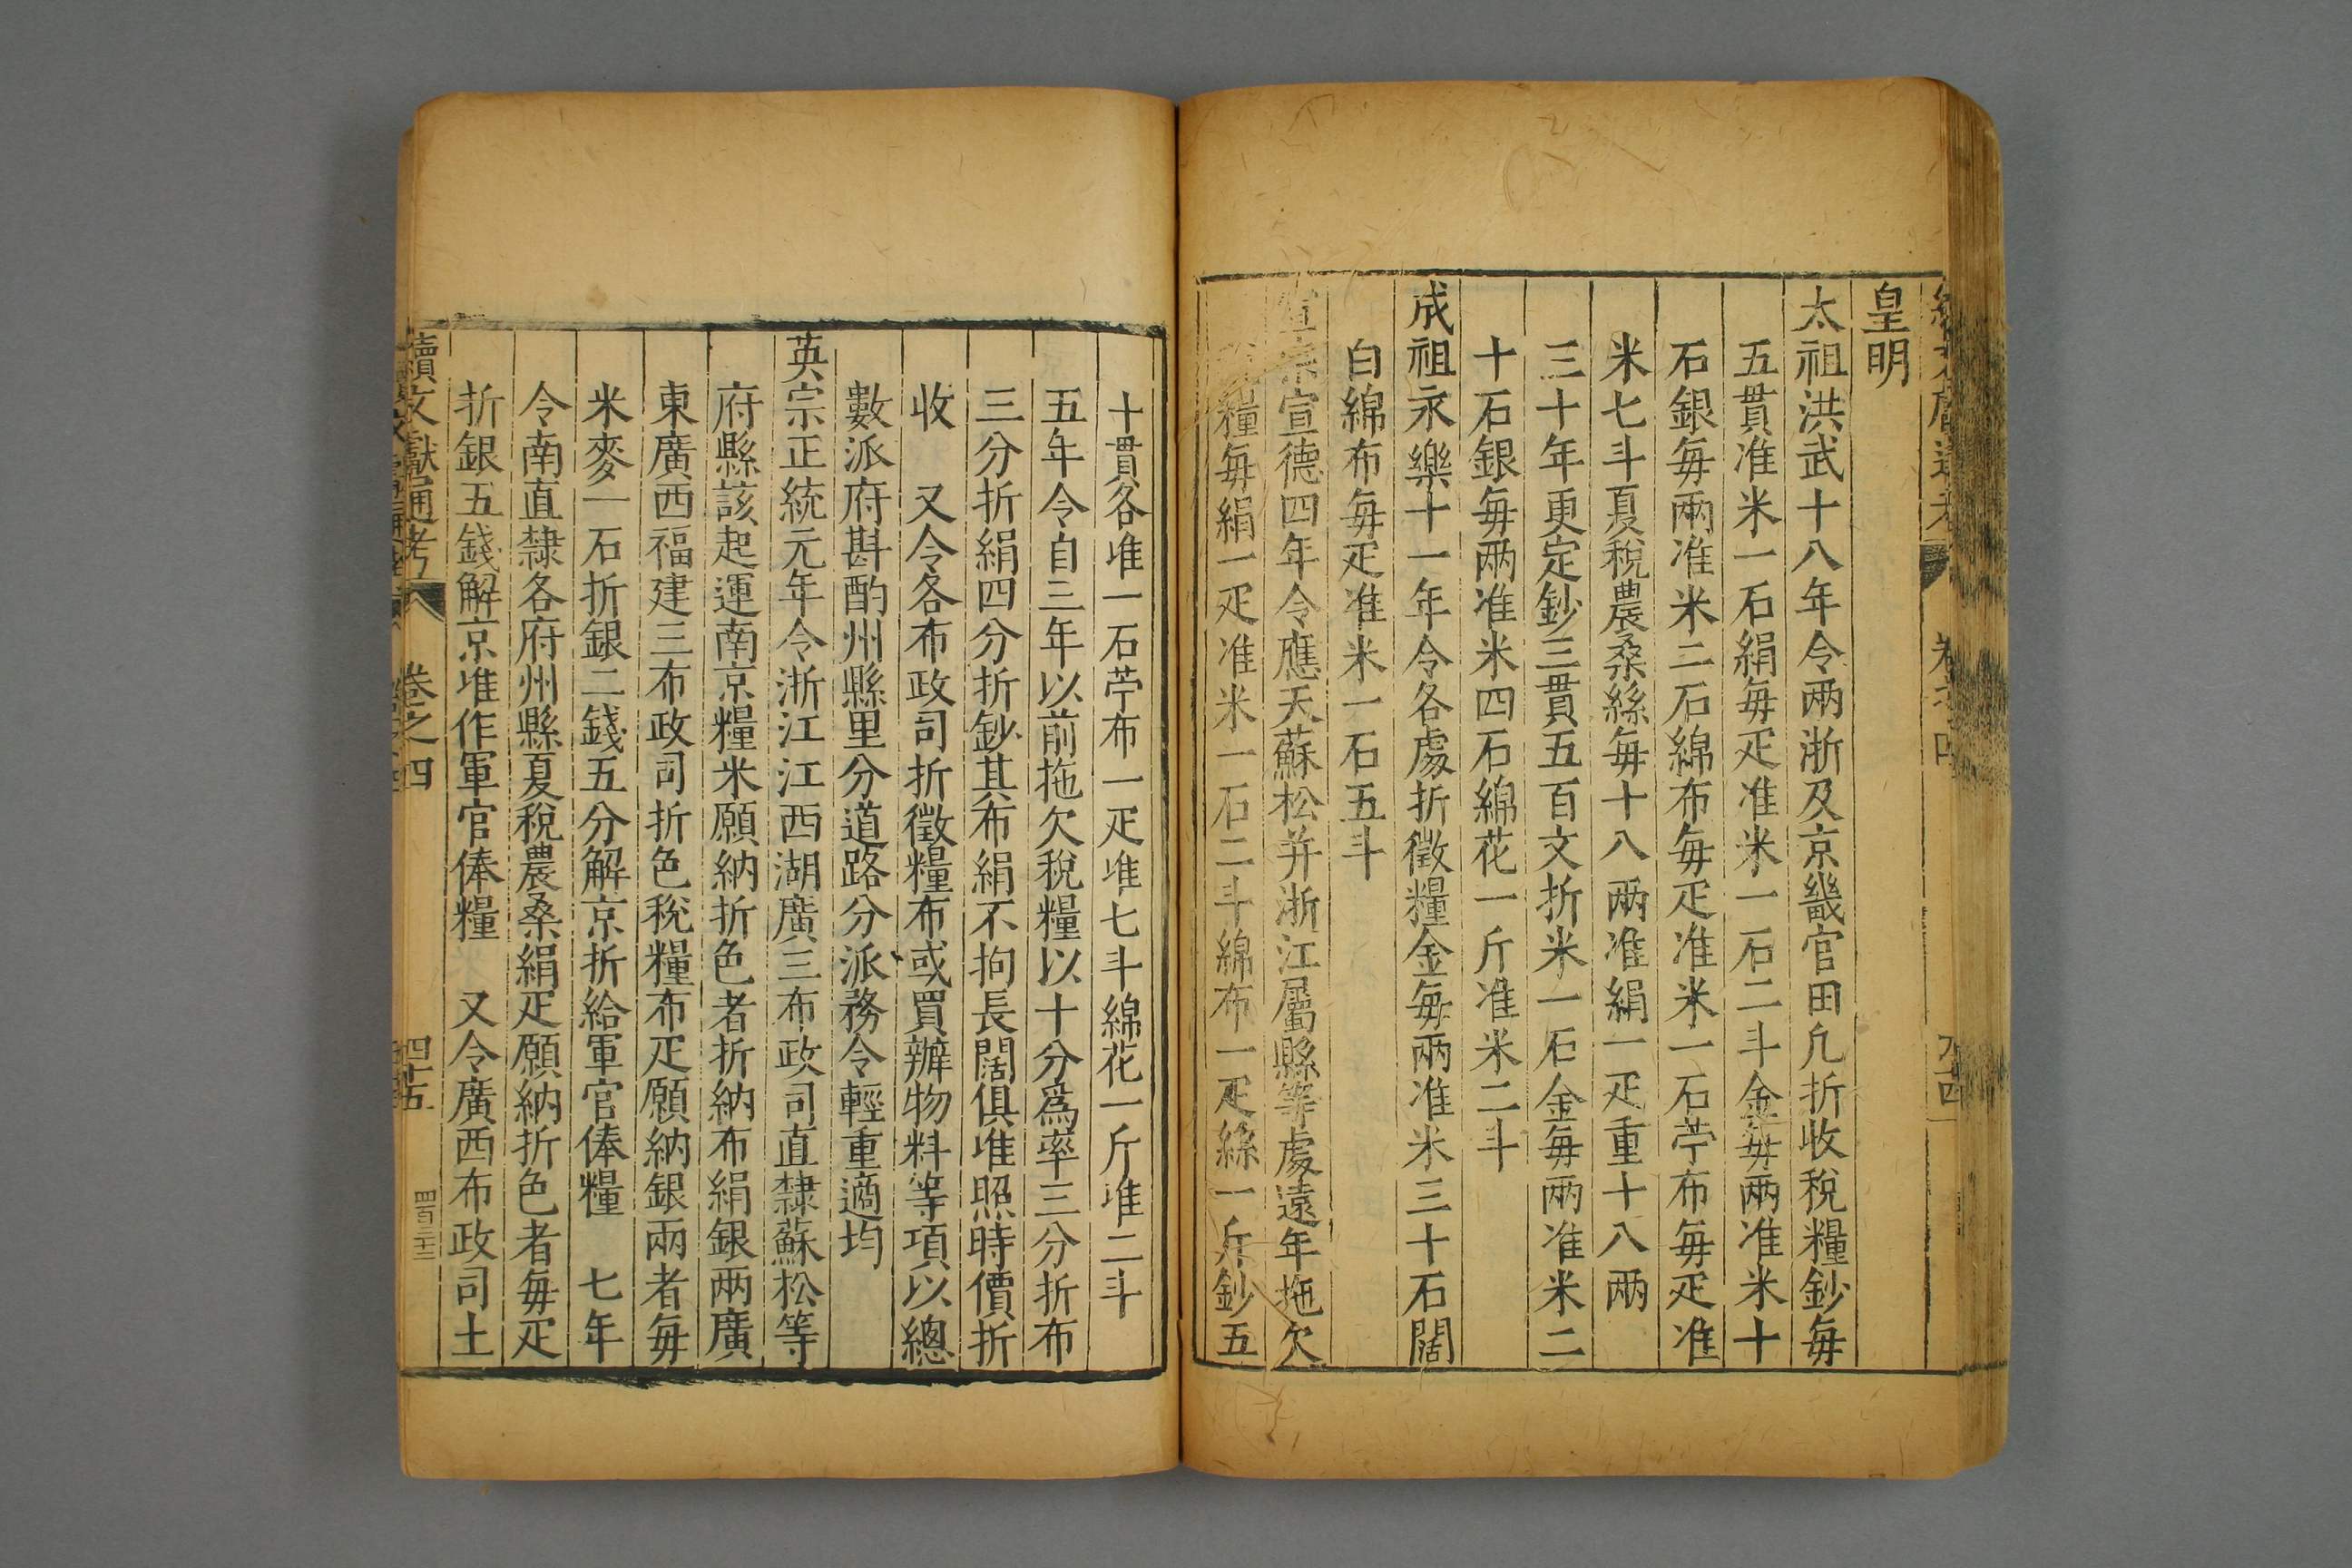 皇明
太祖洪武十八年令兩浙及京畿官田凢折收稅糧鈔每
五貫准米一石絹每疋准米一石二斗金每兩准米十
石銀每兩准米二石綿布每疋准米一石苧布每疋准
米七斗夏稅農桑絲每十八兩准絹一疋重十八兩
三十年更定鈔三貫五百文折米一石金每兩准米二
十石銀每兩准米四石綿花一斤准米二斗
成祖永樂十一年令各處折徵糧金每兩准米三十石闊
白綿布每疋准米一石五斗
宣宗宣德四年令應天蘇松并浙江屬縣等處遠年拖欠
糧每絹一疋准米一石二斗綿布一疋絲一斤鈔五
十貫各准一石苧布一疋准七斗綿花一斤准二斗
五年令自三年以前拖欠稅糧以十分爲率三分折布
三分折絹四分折鈔其布絹不拘長闊俱准照時價折
收　又令各布政司折徵糧布或買辦物料等項以總
數派府斟酌州縣里分道路分派務令輕重適均
英宗正統元年令浙江江西湖廣三布政司直隸蘇松等
府縣該起運南京糧米願納折色者折納布絹銀兩廣
東廣西福建三布政司折色稅糧布疋願納銀兩者每
米麥一石折銀二錢五分解京折給軍官俸糧　七年
令南直隸各府州縣夏稅農桑絹疋願納折色者每疋
折銀五錢解京准作軍官俸糧　又令廣西布政司土
續文獻通考　卷之四　四十五